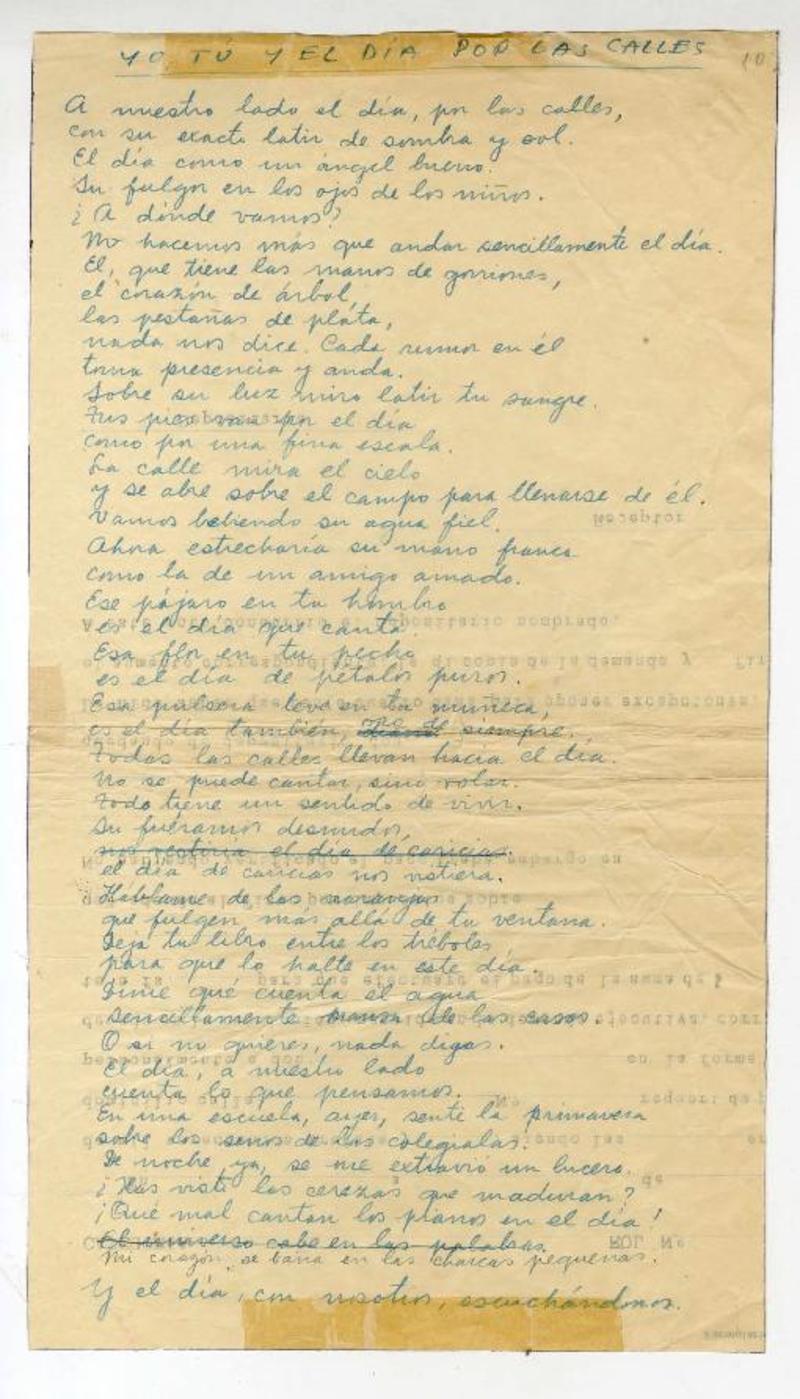 YO TÚ Y EL DÍA POR LAS CALLES
10
A nuestro lado el día, por las calles,
con su exacto latir de sombra y sol.
El día como un ángel bueno.
Su fulgor en los ojos de los niños.
¿A dónde vamos?
No hacemos más que andar sencillamente el día.
El, que tiene las manos de gorriones,
el corazón de árbol,
las pestañas de plata,
nada nos dice. Cada rumor en él
toma presencia y anda.
Sobre su luz miro latir tu sangre.
Tus pies van por el día
como por una fina escala.
La calle mira el cielo
y se abre sobre el campo para llenarse de él.
Vamos bebiendo su agua fiel.
Ahora estrecharía su mano franca
como la de un amigo amado.
Ese pájaro en tu hombro
es el día que canta.
Esa flor en tu pecho
es el día de pétalos puros.
Esa pulsera leve en tu muñeca,
es el día también, de siempre.
Todas las calles llevan hacia el día.
No se puede cantar, sino volar.
Todo tiene un sentido de vivir.
Si fuéramos desnudos,
nos vestiría el día de caricias.
el día de caricias nos vistiera.
Háblame de las naranjas
que fulgen más allá de tu ventana.
Deja tu libro entre los tréboles
para que lo halle en este día.
Dime qué cuenta el agua
sencillamente de las casas.
O si no quieres, nada digas.
El día, a nuestro lado
cuenta lo que pensamos.
En una escuela, ayer, sentí la primavera
sobre los senos de las colegialas.
De noche, ya, se me extravió un lucero.
¿Has visto las cerezas que maduran?
¡Qué mal cantan los pianos en el día!
El universo cabe en las palabras.
Mi corazón se baña en las charcas pequeñas.
Y el día, con nosotros, escuchándonos.